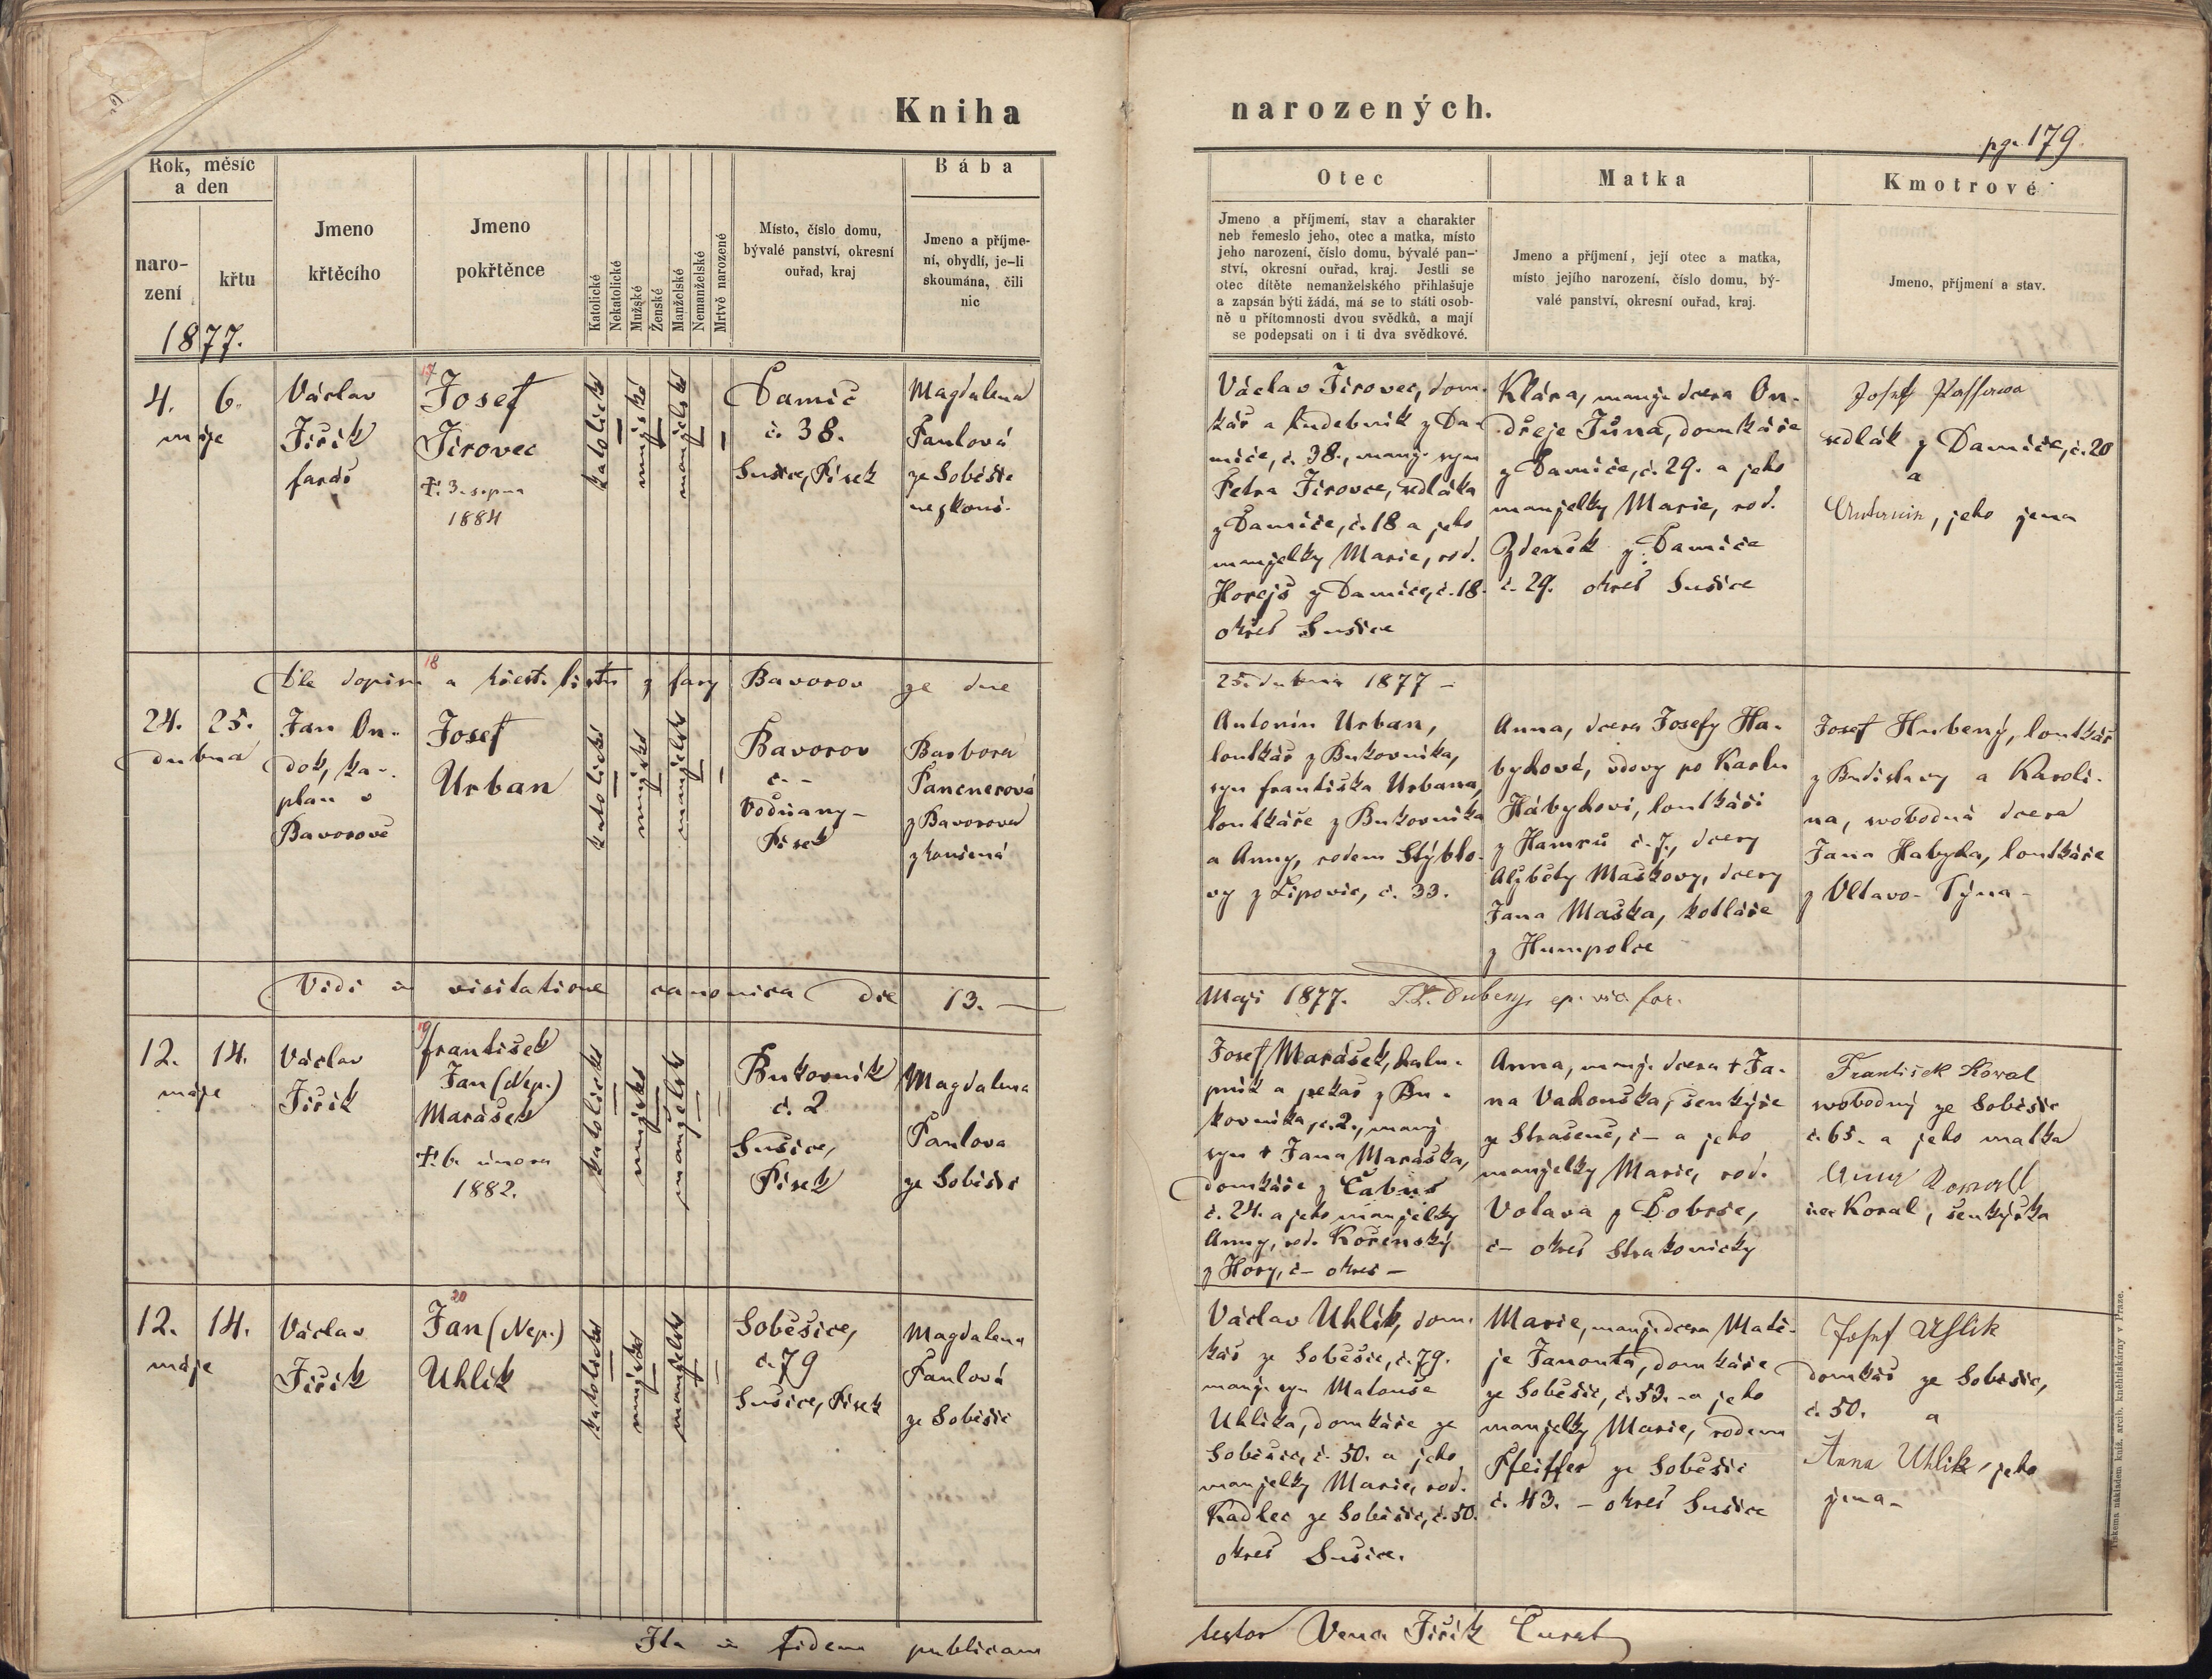 Kniha
narozených.
pg. 179.
Rok, měsíc
a den
naro-
zení
křtu
1877.
Jmeno
křtěcího
Jmeno
pokřtěnce
Katolické
Nekatolické
Mužské
Ženské
Manželské
Nemanželské
Mrtvě narozené
Místo, číslo domu,
bývalé panství, okresní
ouřad, kraj
Bába
Jmeno a příjme-
ní, obydlí, je-li
skoumána, čili
nic
Otec
Jmeno a příjmení, stav a charakter
neb řemeslo jeho, otec a matka, místo
jeho narození, číslo domu, bývalé pan-
ství, okresní ouřad, kraj. Jestli se
otec dítěte nemanželského přihlašuje
a zapsán býti žádá, má se to státi osob-
ně u přítomnosti dvou svědků, a mají
se podepsati on i ti dva svědkové.
Matka
Jmeno a příjmení, její otec a matka,
místo jejího narození, číslo domu, bý-
valé panství, okresní ouřad, kraj.
Kmotrové
Jmeno, příjmení a stav.
4. 6.
máje
Václav
Jiřík
farář
17
Josef
Jirovec
†. 3. srpna
1884
katolické
mužské
manželské
Damíč
č. 38.
Sušice, Písek
Magdalena
Paulová
ze Soběšic
nezkouš.
Václav Jirovec, dom-
kář a hudebník z Da-
míče, č. 38., manž. syn
Petra Jirovce, sedláka
z Damíče, č. 18 a jeho
manželky Marie, rod.
Horejš z Damíče, č. 18.
okres Sušice
Klára, manž. dcera On-
dřeje Jůna, domkáře
z Damíče, č. 29. a jeho
manželky Marie, rod.
Zdeněk z Damíče
č. 29. okres Sušice
Josef
sedlák z Damíče, č. 20
a
jeho žena
18
Dle dopisu a křest. listu z fary Bavorov ze dne
25. dubna 1877 –
24. 25.
dubna
Jan On-
dok, ka-
plan v
Bavorově
Josef
Urban
katolické
mužské
manželské
Bavorov
č. –
Vodňany –
Písek
Barbora
Pancnerová
z Bavorova
zkoušená
Antonín Urban,
loutkář z Bukovníka,
syn Františka Urbana,
loutkáře z Bukovníka
a Anny, rodem Stýblo-
vy z Lipovic, č. 33.
Anna, dcera Josefy Ha-
bychové, vdovy po Karlu
Hábychovi, loutkáři
z Hamrů č. 7., dcery
Alžběty Maškovy, dcery
Jana Maška, kotláře
z Humpolce
Josef Hubený, loutkář
z Budislavy a Karoli-
na, svobodná dcera
Jana Habycha, loutkáře
z Vltavo-Týna –
Vidi in visitatione canonica die 13. –
Maji 1877.
12. 14.
máje
Václav
Jiřík
19
František
Jan (Nep.)
Marášek
†. 6. února
1882.
katolické
mužské
manželské
Bukovník
č. 2
Sušice,
Písek
Magdalena
Paulova
ze Soběšic
Josef Marášek, chalu-
pník a pekař z Bu-
kovníka, č. 2., manž.
syn † Jana Maráška,
domkáře z Čabus
č. 24. a jeho manželky
Anny, rod. Kořenský
z Hory, č – okres –
Anna, manž. dcera † Ja-
na Vachouška, šenkýře
ze Strašeně, č – a jeho
manželky Marie, rod.
Volava z Dobrše,
č – okres Strakonický
František Koral
svobodný ze Soběšic
č. 65. a jeho matka
Anna
Koral, šenkýřka
12. 14.
máje
Václav
Jiřík
20
Jan (Nep.)
Uhlík
katolické
mužské
manželské
Soběšice,
č. 79
Sušice, Písek
Magdalena
Paulová
ze Soběšic
Václav Uhlík, dom-
kář ze Soběšic, č. 79.
manž. syn Matouše
Uhlíka, domkáře ze
Soběšic, č. 50. a jeho
manželky Marie, rod.
Kadlec ze Soběšic, č. 50.
okres Sušice.
Marie, manž. dcera Matě-
je Janouta, domkáře
ze Soběšic, č. 53. – a jeho
manželky Marie, rodem
Pfeiffer ze Soběšic
č. 43. – okres Sušice
Josef Uhlik
domkář ze Soběšic,
č. 50. a
Anna Uhlik, jeho
žena –
Ita in fidem publicam
testor Vena Jiřík Curat